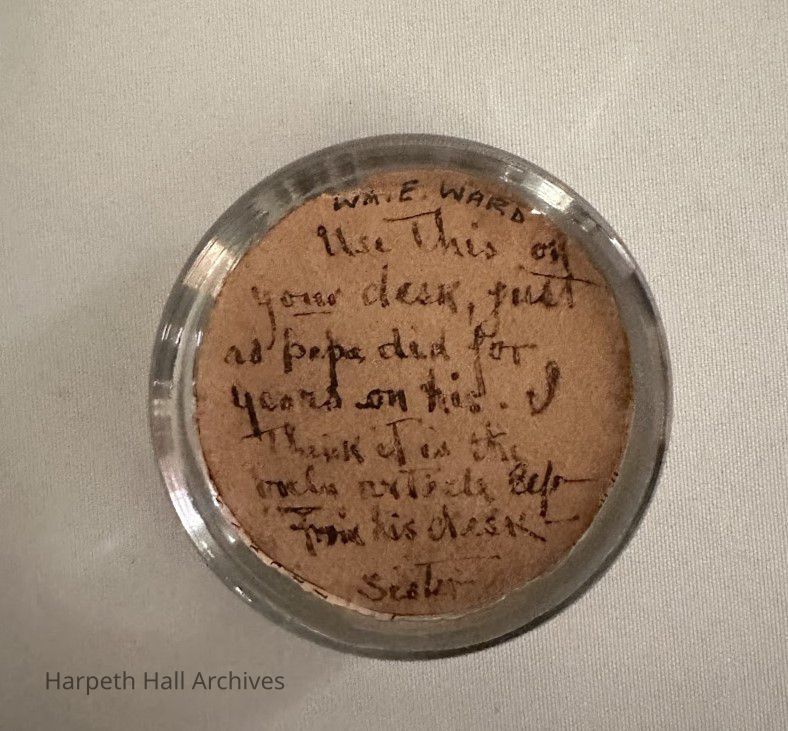 WM. E. WARD
Use This on
your desk, just
as papa did for
years on his. I
Think it is the
only article left
From his desk -
Sister
Harpeth Hall Archives